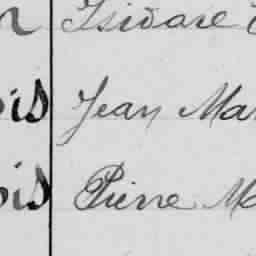 Isidore
ois Jean Mar
ois Pierre Ma